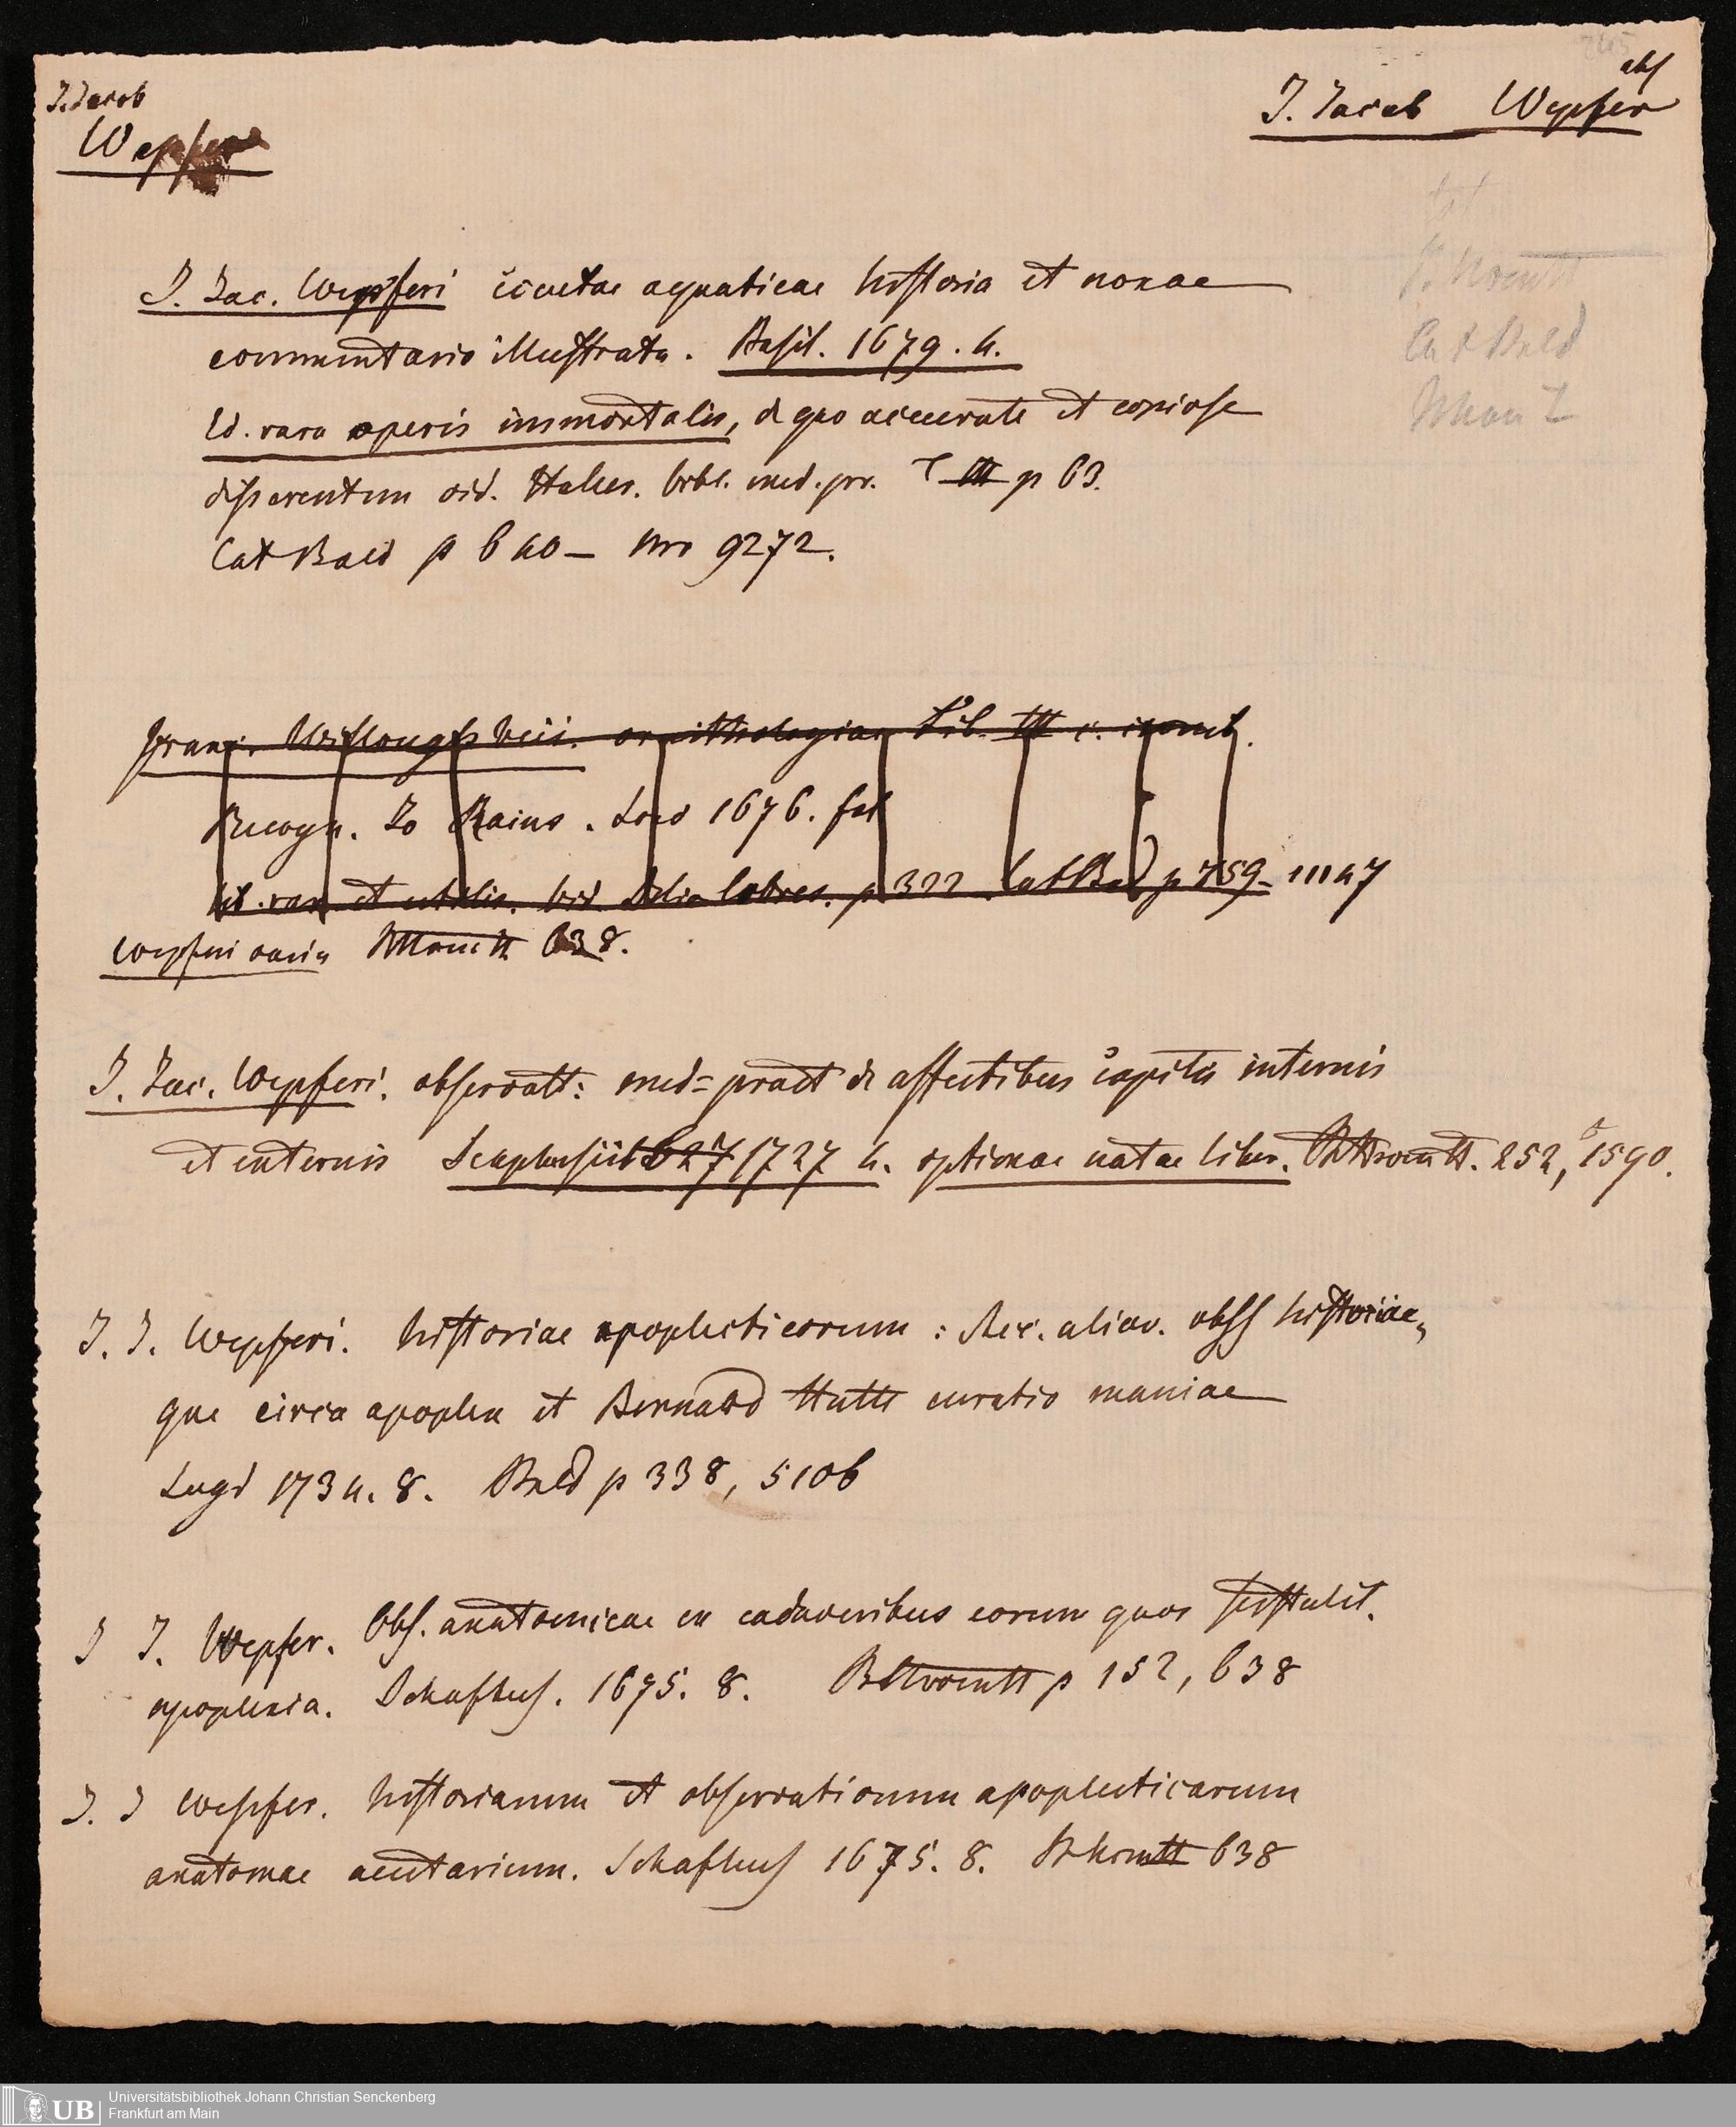 J. Jacob
Wepfer
J. Jacob Wepfer
abs
J. Jac. Wepferi cicutae aquaticae historia et noxae
commentario illustrata. Basil. 1679. 4.
Ed. rara operis immortalis, de quo accurate et copiose
disserentem vid. Haller. bibl. med. pr. T III p 63.
Cat Bald p 640 – nro 9272.
Franc. Willoughbeii. ornithologiae Lib. III c. iconib.
Recogn. Jo Raius. Lond 1676. fol
lib. rar. et utilis. vid. p 322. Cat Bald p 759 – 11147
Wepferi varia 638.
J. Jac. Wepferi. observatt: med=pract de affectibus capitis internis
et externis 1727 4. optimae notae liber. 252, 1590.
Cat Bald
J. J. Wepferi. historiae apoplecticorum: Acc. aliar. obss historiae„
que circa apoplex et Bernard Hutte curatio maniae
Lugd 1734. 8. Bald p 338, 5106
J J. Wepfer. Obs. anatomicae ex cadaveribus eorum quos sustulit.
apoplexia. Schafhus. 1675. 8. p 152, 638
J. J Wepfer. historiarum et observationum apoplecticarum
anatomae auctarium. Schafhus 1675. 8. 638
UB
Universitätsbibliothek Johann Christian Senckenberg
Frankfurt am Main